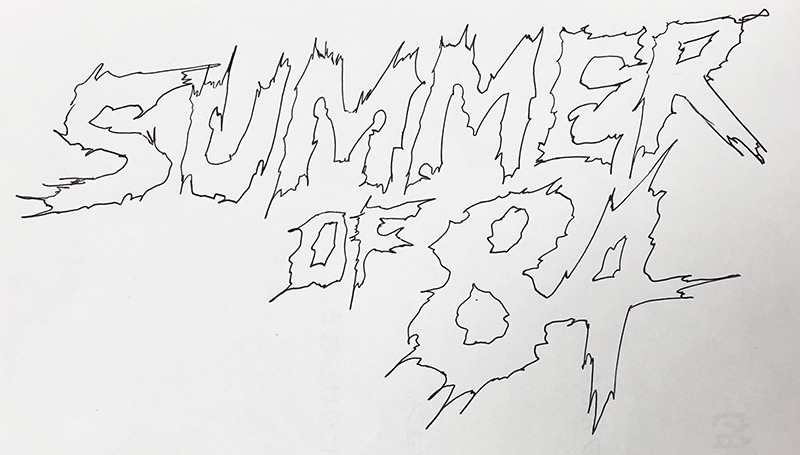 SUMMER
OF 84